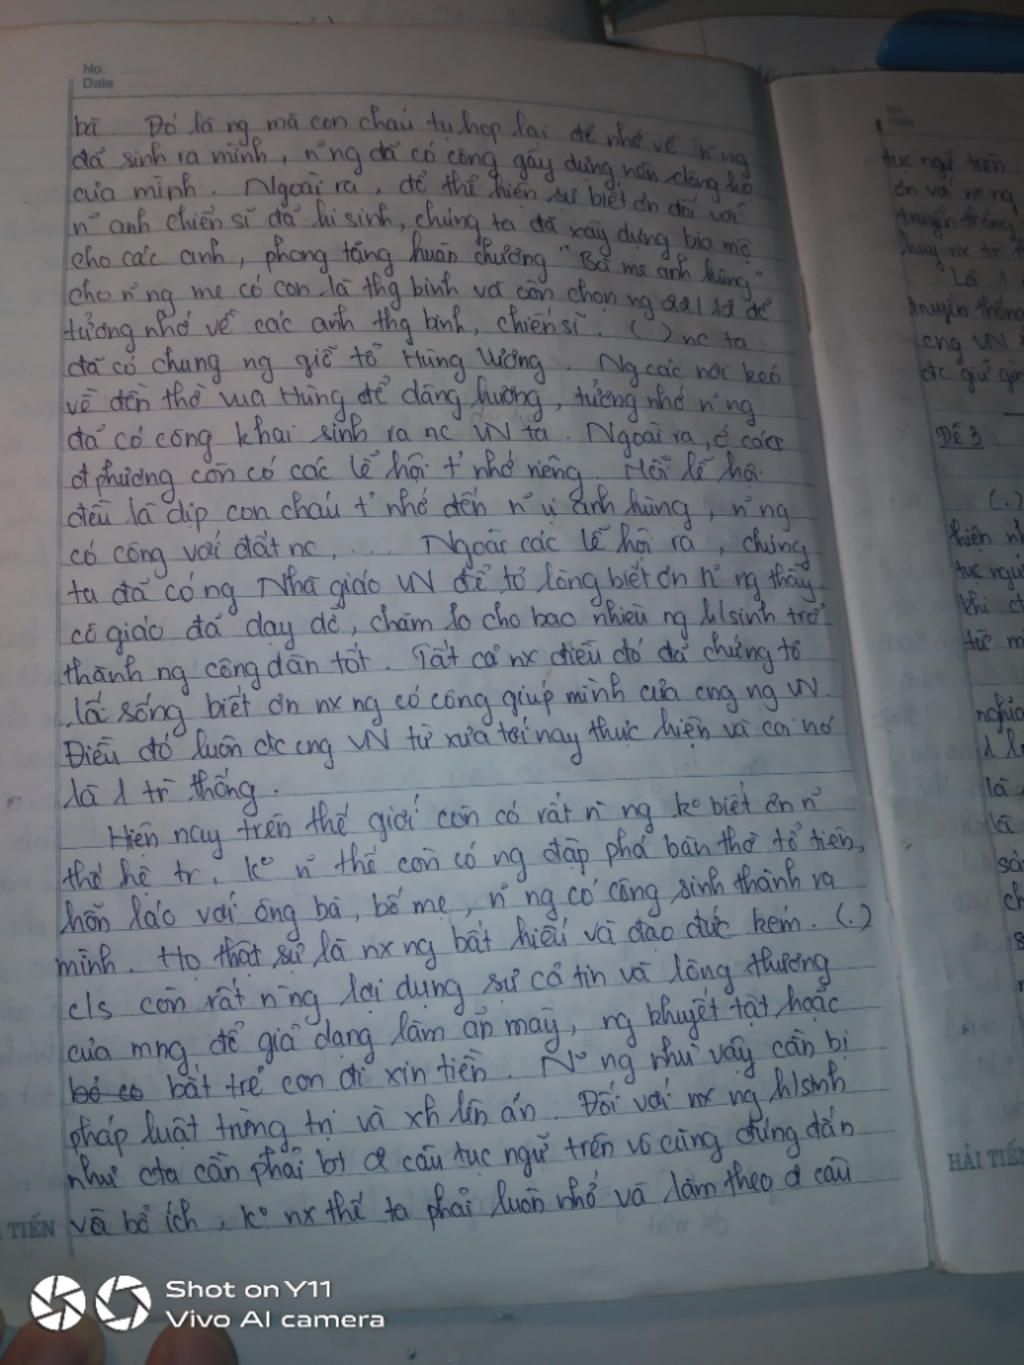 No.
Date
bì Đó là ng mà con cháu tụ họp lại để nhớ về n~ng
đã sinh ra mình, n~ng đã có công gây dựng nên dòng họ
của mình. Ngoài ra, để thể hiện sự biết ơn đối với
n~ anh chiến sĩ đã hi sinh, chúng ta đã xây dựng bia mộ
cho các anh, phong tặng huân chương "Bà mẹ anh hùng"
cho n~ng mẹ có con là thg binh và còn chọn ng 22/12 để
tưởng nhớ về các anh thg binh, chiến sĩ. ( ) nc ta
đã có chung ng giỗ tổ Hùng Vương. Ng các nơi kéo
về đền thờ vua Hùng để dâng hương, tưởng nhớ n~ng
đã có công khai sinh ra nc VN ta. Ngoài ra, ở các
đ phương còn có các lễ hội t' nhớ riêng. Mỗi lễ hội
đều là dịp con cháu t' nhớ đến n~ vị anh hùng, n~ng
có công với đất nc, ... Ngoài các lễ hội ra, chúng
ta đã có ng Nhà giáo VN để tỏ lòng biết ơn n~ ng thầy
cô giáo đã dạy dỗ, chăm lo cho bao nhiêu ng h/sinh trở
thành ng công dân tốt. Tất cả nx điều đó đã chứng tỏ
lối sống biết ơn nx ng có công giúp mình của cng ng VN.
Điều đó luôn đc cng VN từ xưa tới nay thực hiện và coi nó
là 1 tr` thống.
Hiện nay trên thế giới còn có rất n` ng k° biết ơn n~
thế hệ tr', k° n~ thế còn có ng đập phá bàn thờ tổ tiên,
hỗn láo với ông bà, bố mẹ, n~ ng có công sinh thành ra
mình. Họ thật sự là nx ng bất hiếu và đạo đức kém. (.)
c/s còn rất n` ng lợi dụng sự cả tin và lòng thương
của mng để giả dạng làm ăn mày, ng khuyết tật hoặc
bắt trẻ con đi xin tiền. N~ ng như vậy cần bị
pháp luật trừng trị và xh lên án. Đối với nx ng h/sinh
như cta cần phải bt 2 câu tục ngữ trên vô cùng đúng đắn
và bổ ích, k° nx thế ta phải luôn nhớ và làm theo 2 câu
TIẾN
tục ngữ trên.
ơn với n~ ng
truyền thống
Là 1
truyền thống
cng VN
đc giữ gìn
Đề 3
(.)
tục ngữ
khi
là
HẢI TIẾN
Shot on Y11
Vivo AI camera